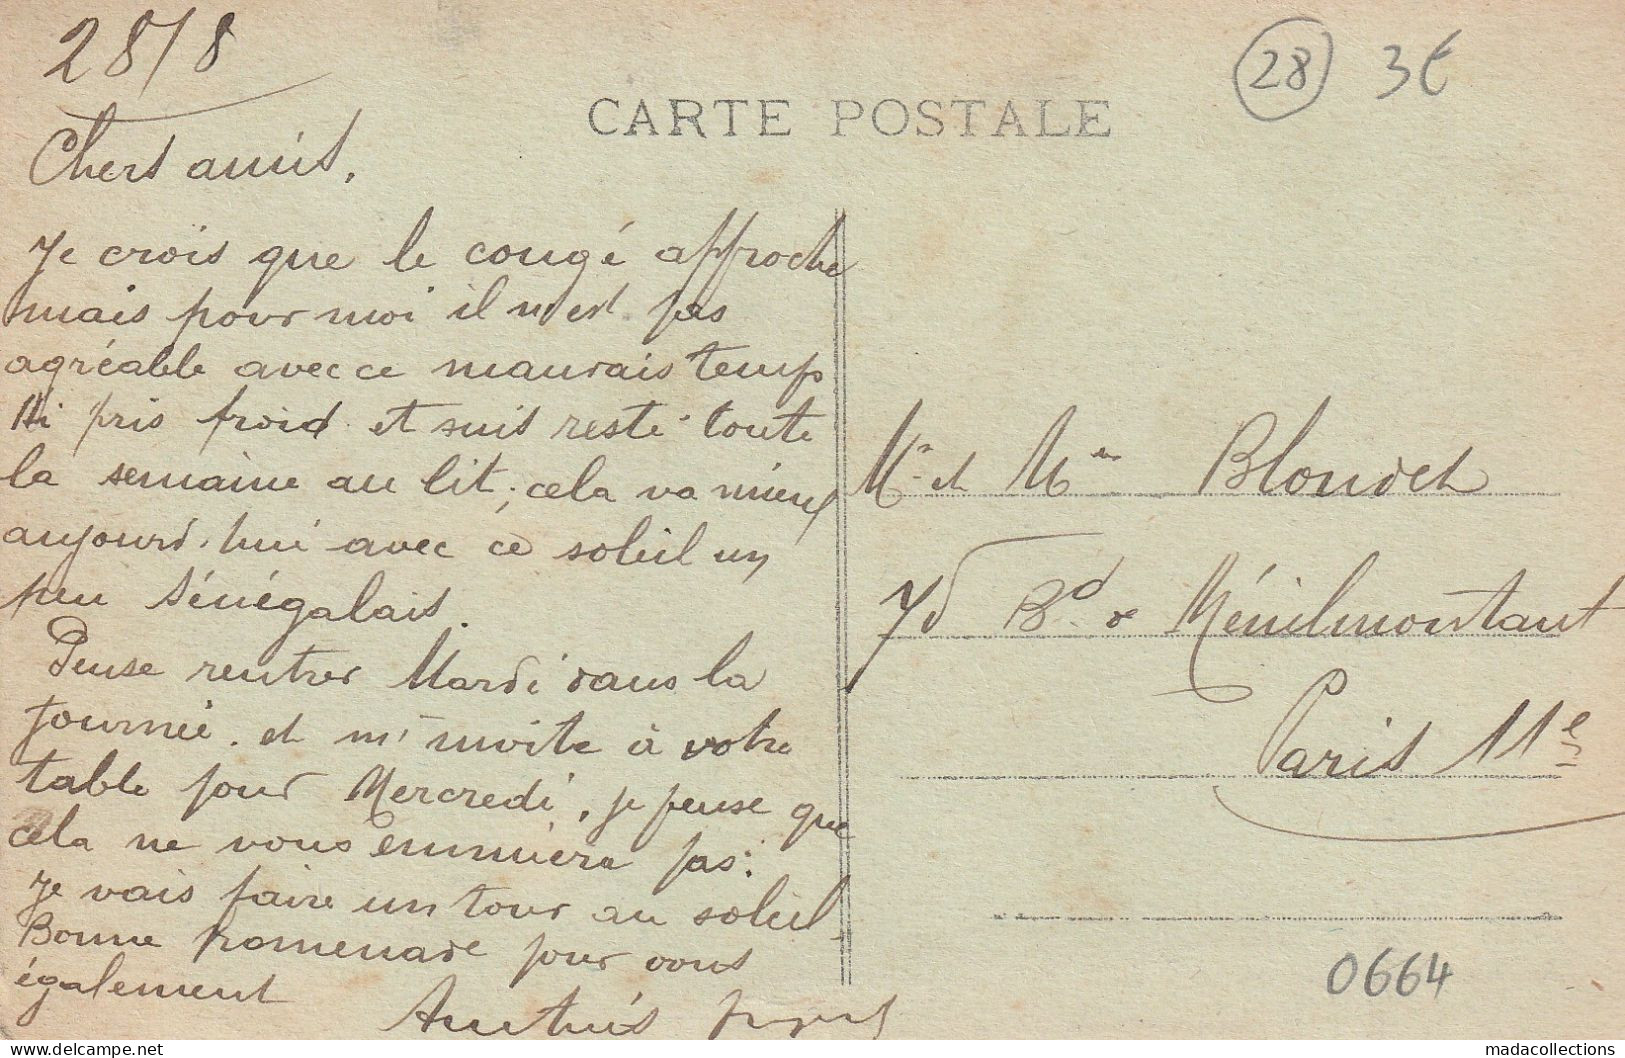 28/8
28 3€
CARTE POSTALE
Chers amis,
Je crois que le congé approche
mais pour moi il n'est pas
agréable avec ce mauvais temps
Ai pris froid et suis resté toute
la semaine au lit, cela va mieux
aujourd'hui avec ce soleil un
peu Sénégalais.
Pense rentrer Mardi dans la
journée. et m'invite à votre
table pour Mercredi, je pense que
cela ne vous ennuiera pas.
Je vais faire un tour au soleil.
Bonne promenade pour vous
également
Mr et Mme Blondet
Bd de Ménilmontant
Paris 11e
0664
www.delcampe.net
madacollections